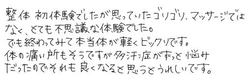 整体初体験でしたが思っていたゴリゴリ、マッサージでは
なく、とても不思議な体験でした。
でも終わってみて本当体が軽くビックリです。
体の痛い所もそうですが多汗症がずっと悩み
だったのでそれも良くなると思うとうれしいです。